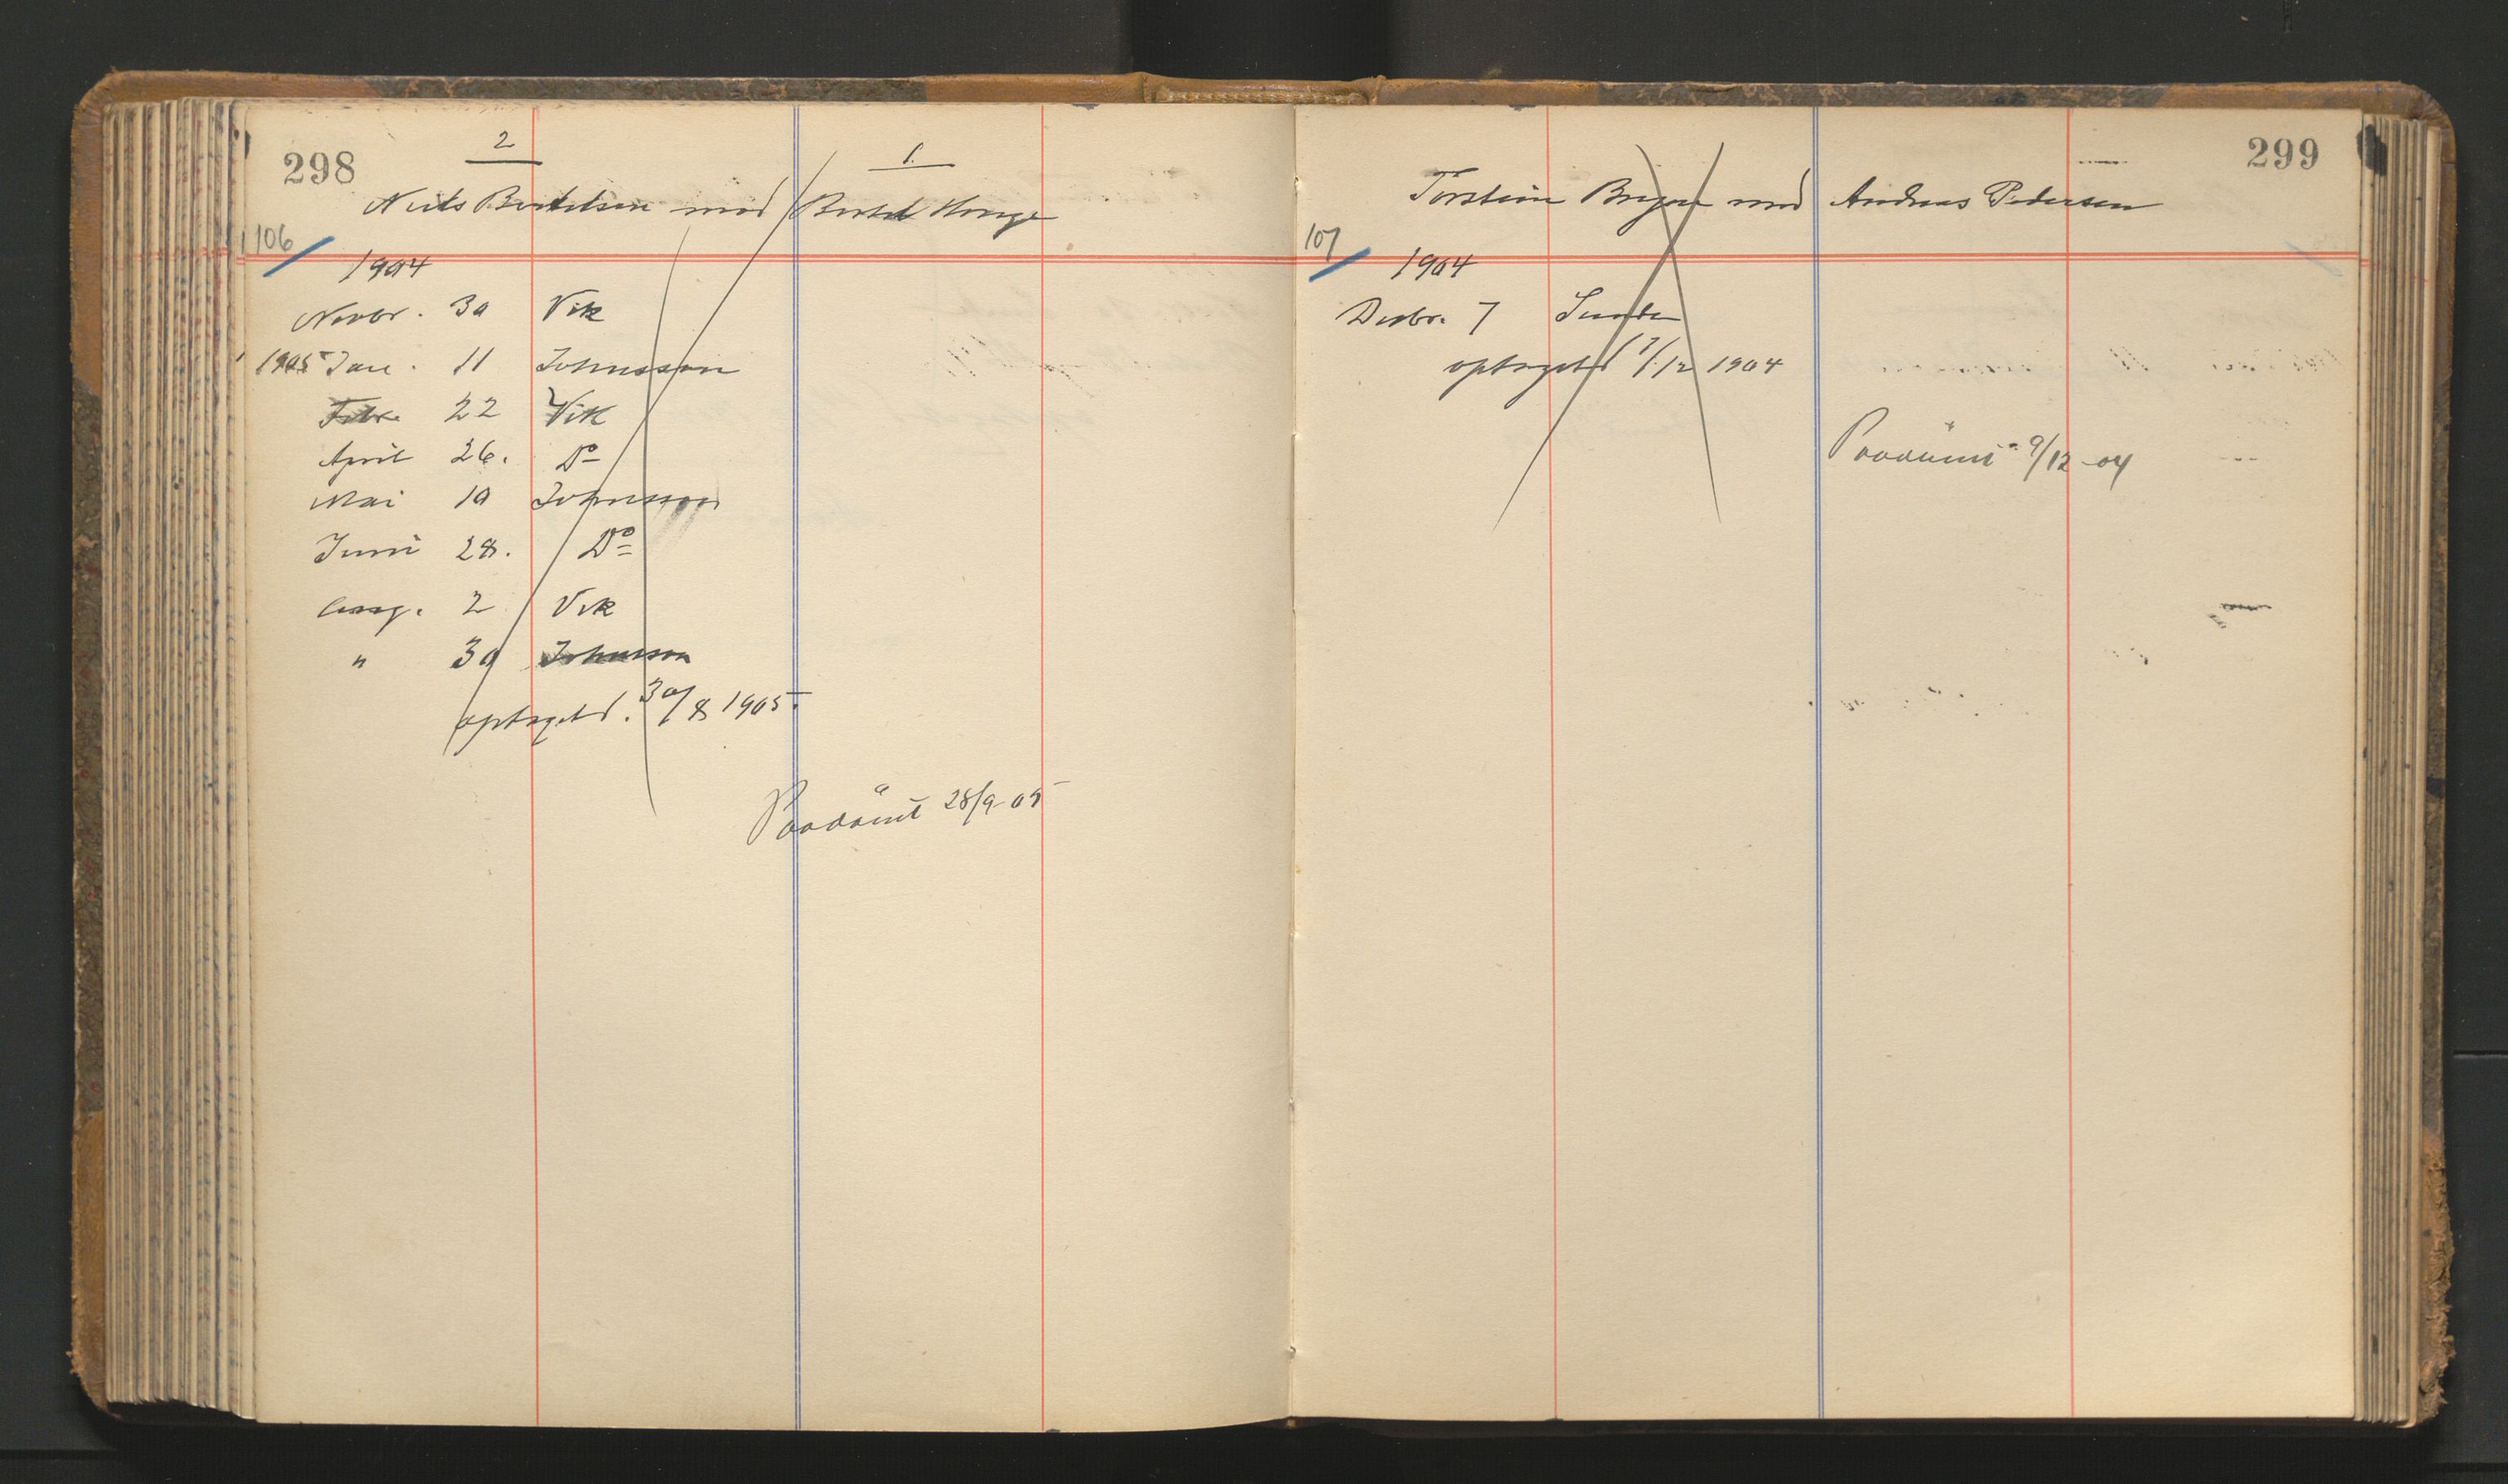 298
2
1.
Niels Bertelsen mod Bertel Hauge
106
1904
Novbr. 30 Vik
1905 Jan. 11 Johnsson
Febr. 22 Vik
April 26. Do
Mai 10 Johnsson
Juni 28. Do
Aug. 2 Vik
" 30 Johnsson
optaget d. 30/8 1905.
Paadömt 28/9-05
299
Torstein Bryne mod Andreas Pedersen
107
1904
Desbr. 7 Sunde
optaget d 7/12 1904
Paadömt 9/12-04